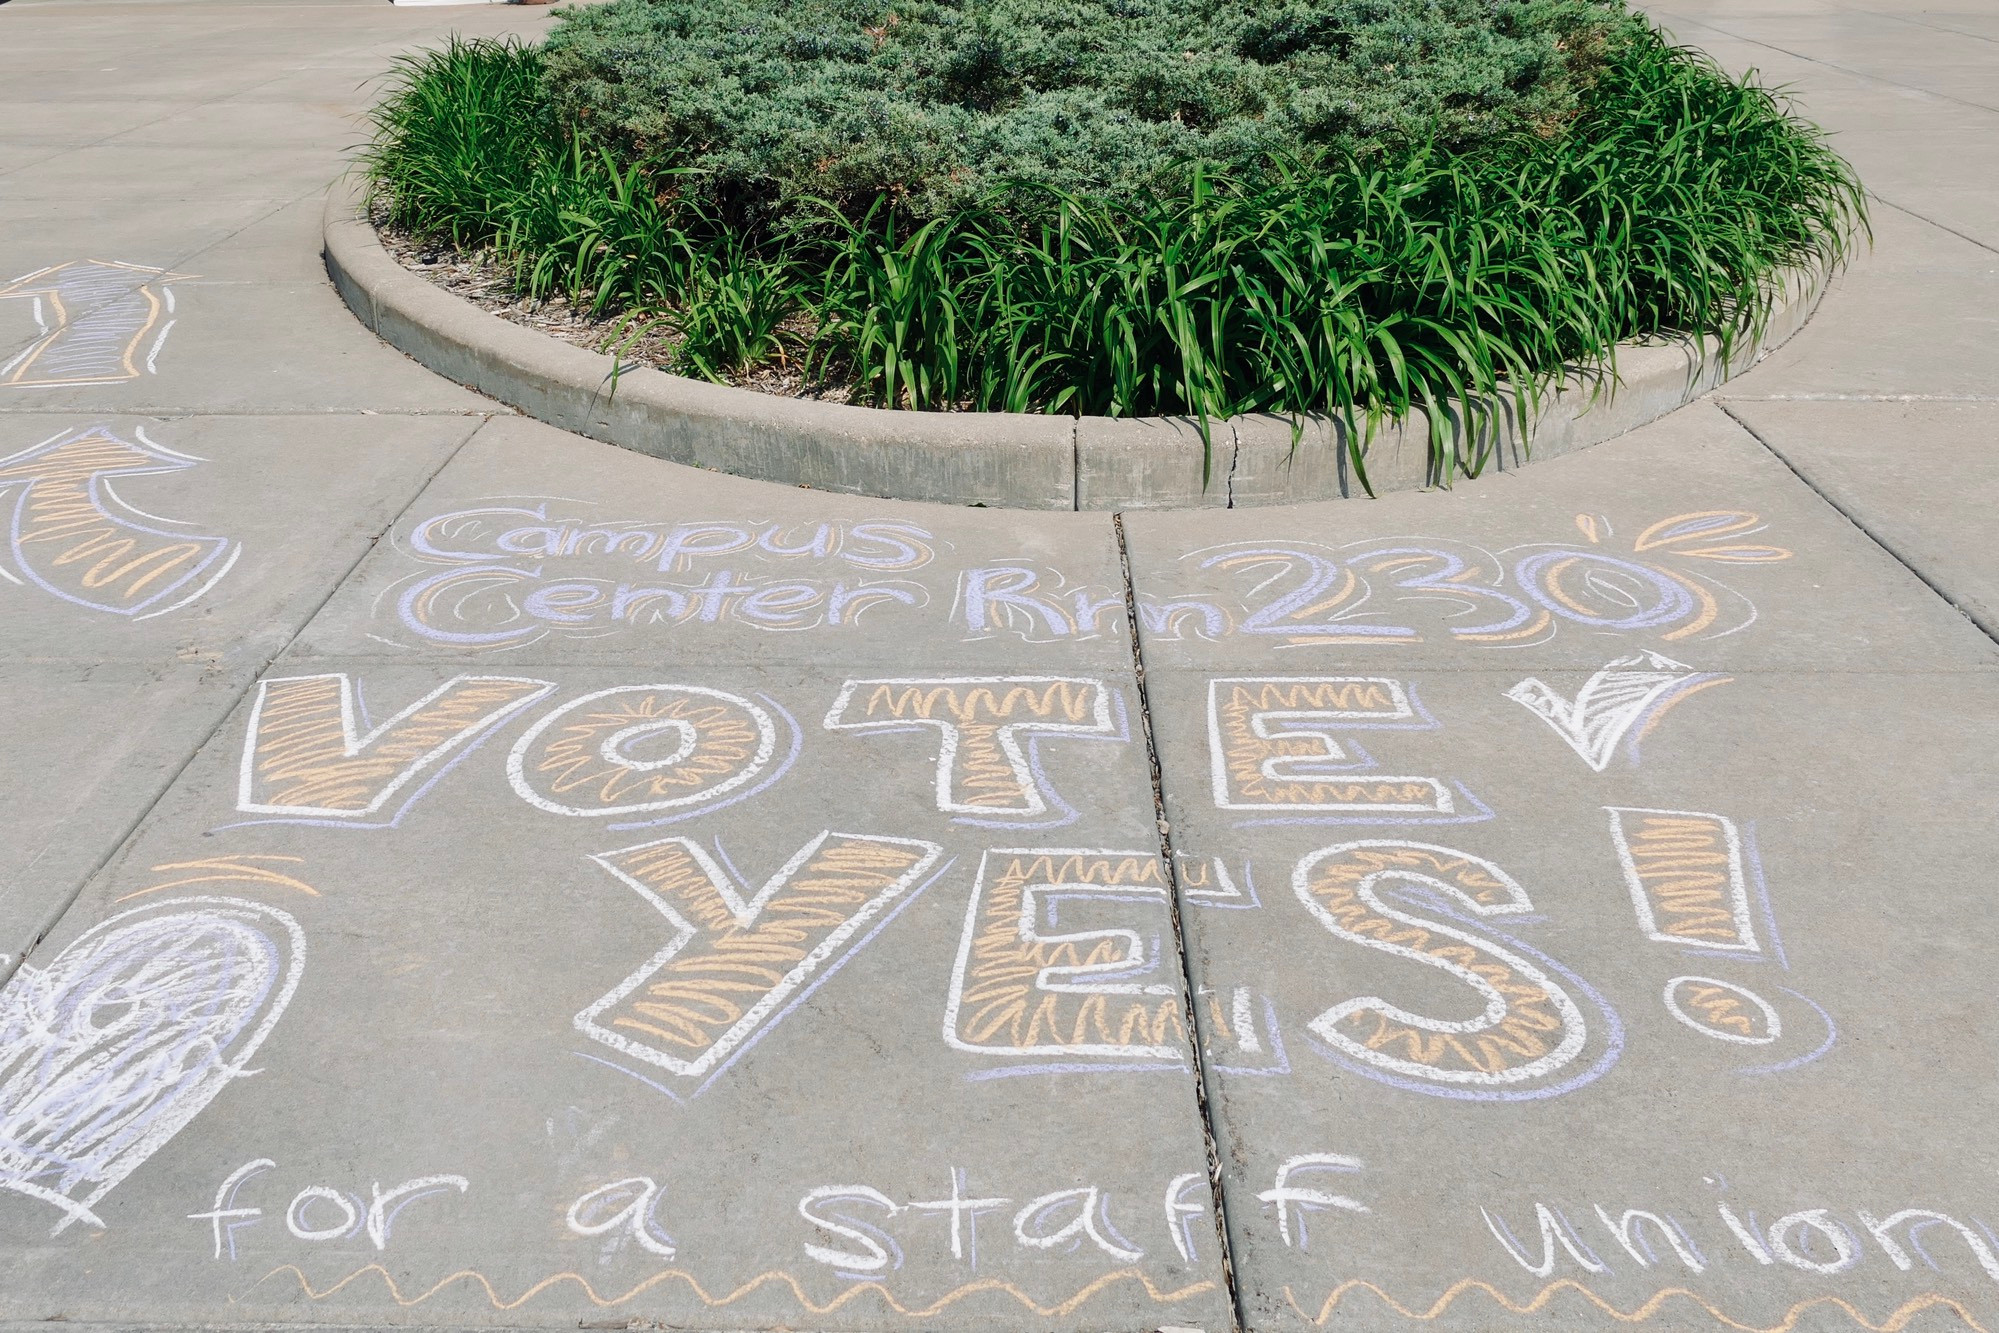 Campus
Center Rm 230
VOTE
YES!
for a staff union